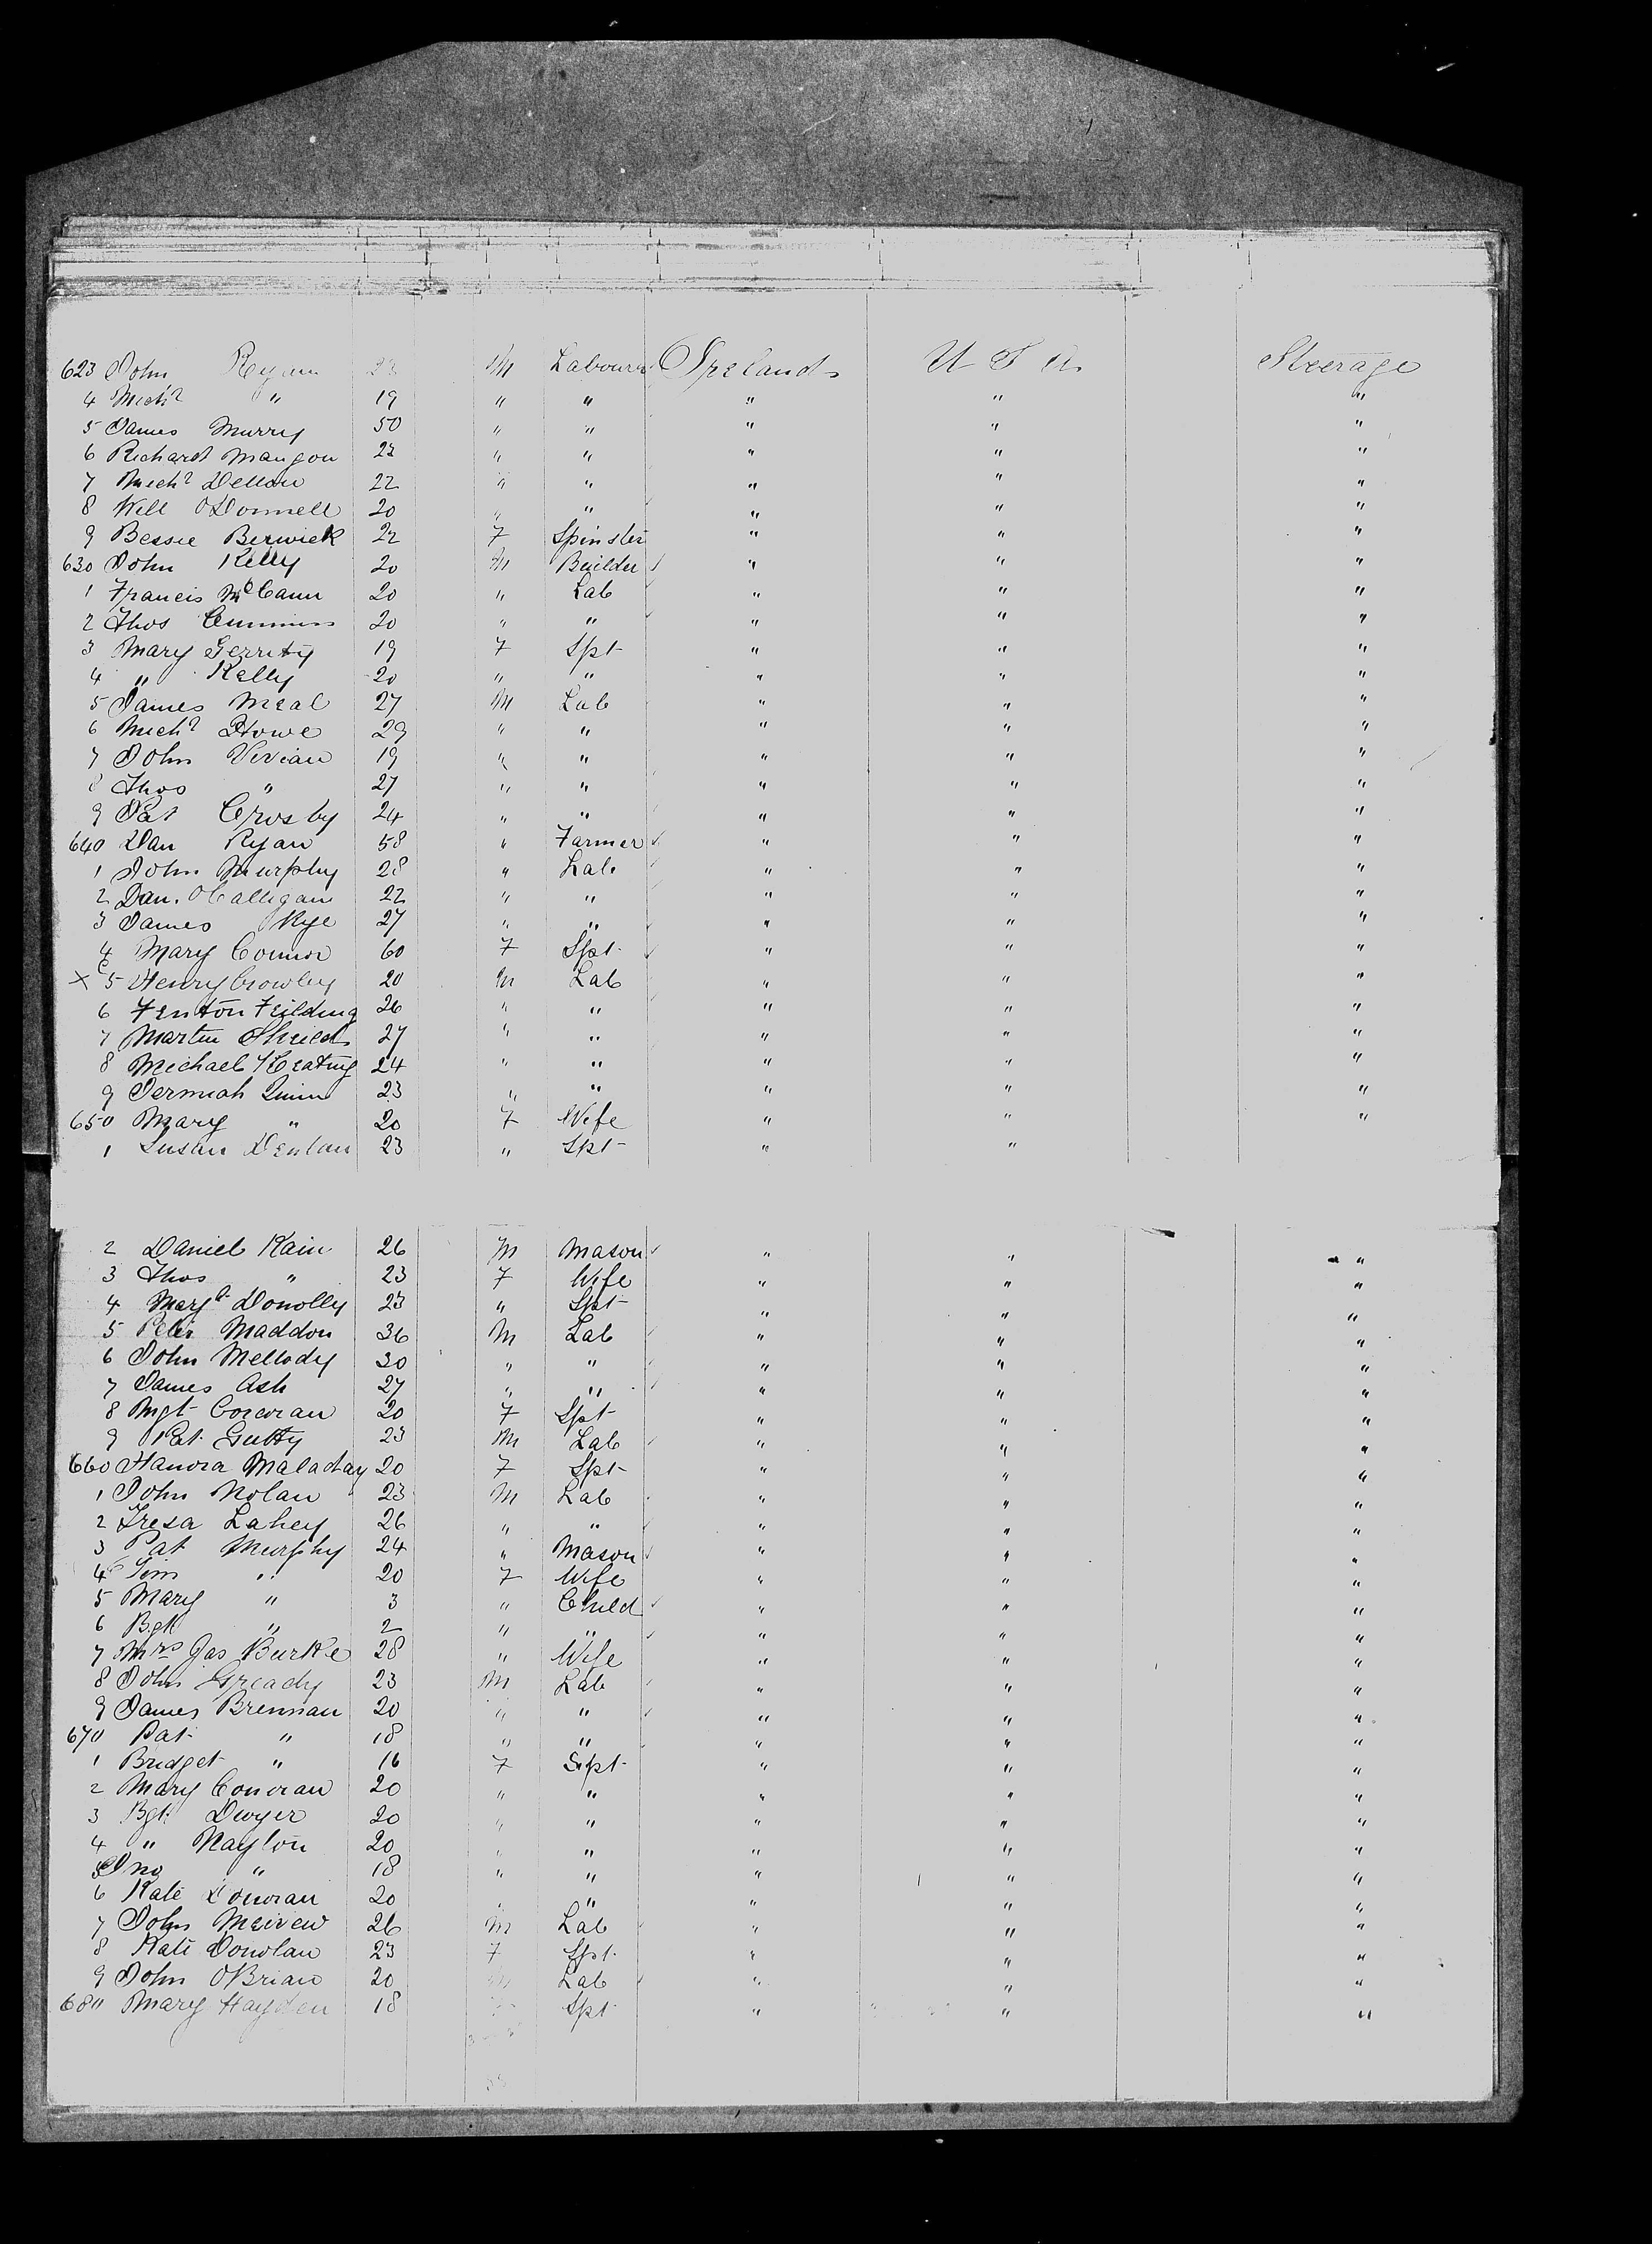 623 John Ryan 23 M Labourer Ireland U S A Steerage
4 Michl " 19 " " " " "
5 James Murry 50 " " " " "
6 Richard Mangon 23 " " " " "
7 Michl Dellon 22 " " " " "
8 Will O'Donnell 20 " " " " "
9 Bessie Berwick 22 F Spinster " " "
630 John Kelly 20 M Builder " " "
1 Francis McCann 20 " Lab " " "
2 Thos Cummins 20 " " " " "
3 Mary Gerrity 19 F Spt " " "
4 " Kelly 20 " " " " "
5 James Meal 27 M Lab " " "
6 Michl Howe 29 " " " " "
7 John Vivian 19 " " " " "
8 Thos " 27 " " " " "
9 Pat Crosby 24 " " " " "
640 Dan Ryan 58 " Farmer " " "
1 John Murphy 28 " Lab " " "
2 Dan. O'Calligan 22 " " " " "
3 James Kye 27 " " " " "
4 Mary Connor 60 F Spt " " "
X 5 Henry Crowley 20 M Lab " " "
6 Fenton Feilding 26 " " " " "
7 Martin Shields 27 " " " " "
8 Michael Keating 24 " " " " "
9 Jermiah Quinn 23 " " " " "
650 Mary " 20 F Wife " " "
1 Susan Denlan 23 " Spt " "
2 Daniel Kain 26 M Mason " " "
3 Thos " 23 F Wife " " "
4 Margt Donolly 23 " Spt " " "
5 Peter Maddon 36 M Lab " " "
6 John Mellody 30 " " " " "
7 James Ash 27 " " " " "
8 Mgt Corcoran 20 F Spt " " "
9 Pat Gutty 23 M Lab " " "
660 Hanora Malachay 20 F Spt " " "
1 John Nolan 23 M Lab " " "
2 Tresa Lahey 26 " " " " "
3 Pat Murphy 24 " Mason " " "
4 Tim " 20 F Wife " " "
5 Mary " 3 " Child " " "
6 Bgt " 2 " " " " "
7 Mrs Jas Burke 28 " Wife " " "
8 John Gready 23 M Lab " " "
9 James Brennan 20 " " " " "
670 Pat " 18 " " " " "
1 Bridget " 16 F Spt " " "
2 Mary Concran 20 " " " " "
3 Bgt Dwyer 20 " " " " "
4 " Naylon 20 " " " " "
5 Jno " 18 " " " " "
6 Kate Donoran 20 " " " " "
7 John 26 M Lab " " "
8 Kate Donolan 23 F Spt " " "
9 John O'Brian 20 M Lab " " "
680 Mary Hayden 18 F Spt " " "